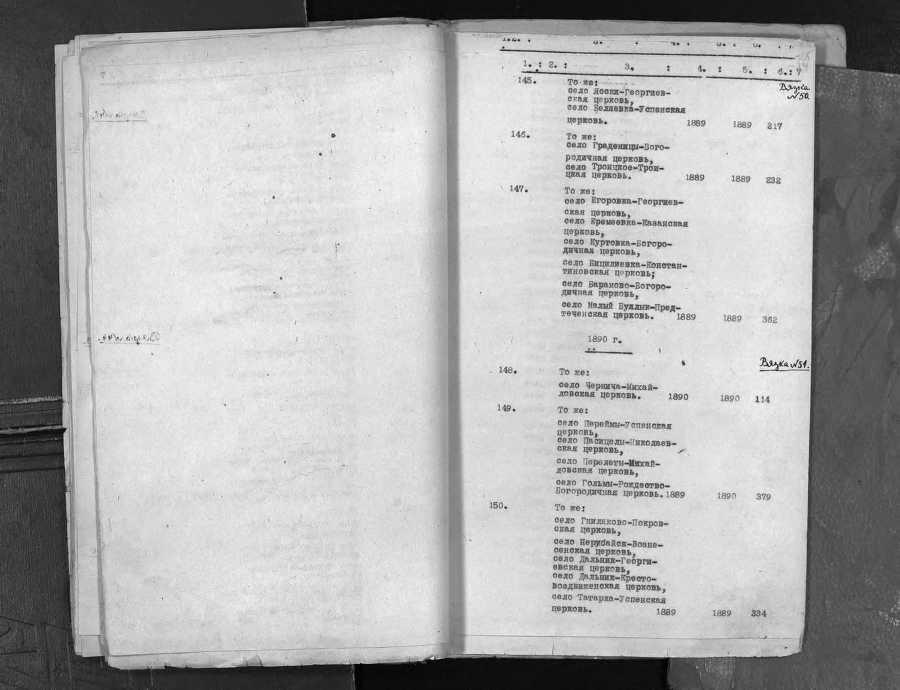 1. : 2. : 3. : 4. : 5. : 6. : 7
Вязка
№50
145. То же:
село Яски-Георгиев-
ская церковь,
село Беляевка-Успенская
церковь. 1889 1889 217
146. То же:
село Граденицы-Бого-
родичная церковь,
село Троицкое-Трои-
цкая церковь. 1889 1889 232
147. То же:
село Егоровка-Георгиев-
ская церковь,
село Еремеевка-Казанская
церковь,
село Куртовка-Богоро-
дичная церковь,
село Кицилиевка-Констан-
тиновская церковь;
село Бараново-Богоро-
дичная церковь,
село Малый Буялык-Пред-
теченская церковь. 1889 1889 362
1890 г.
Вязка №51.
148. То же:
село Чернича-Михай-
ловская церковь. 1890 1890 114
149. То же:
село Переймы-Успенская
церковь,
село Пасицелы-Николаев-
ская церковь,
село Перелеты-Михай-
ловская церковь,
село Гольмы-Рождество-
Богородичная церковь. 1889 1890 379
150. То же:
село Гниляково-Покров-
ская церковь,
село Нерубайск-Возне-
сенская церковь,
село Дальник-Георги-
евская церковь,
село Дальник-Кресто-
воздвиженская церковь,
село Татарка-Успенская
церковь. 1889 1889 334